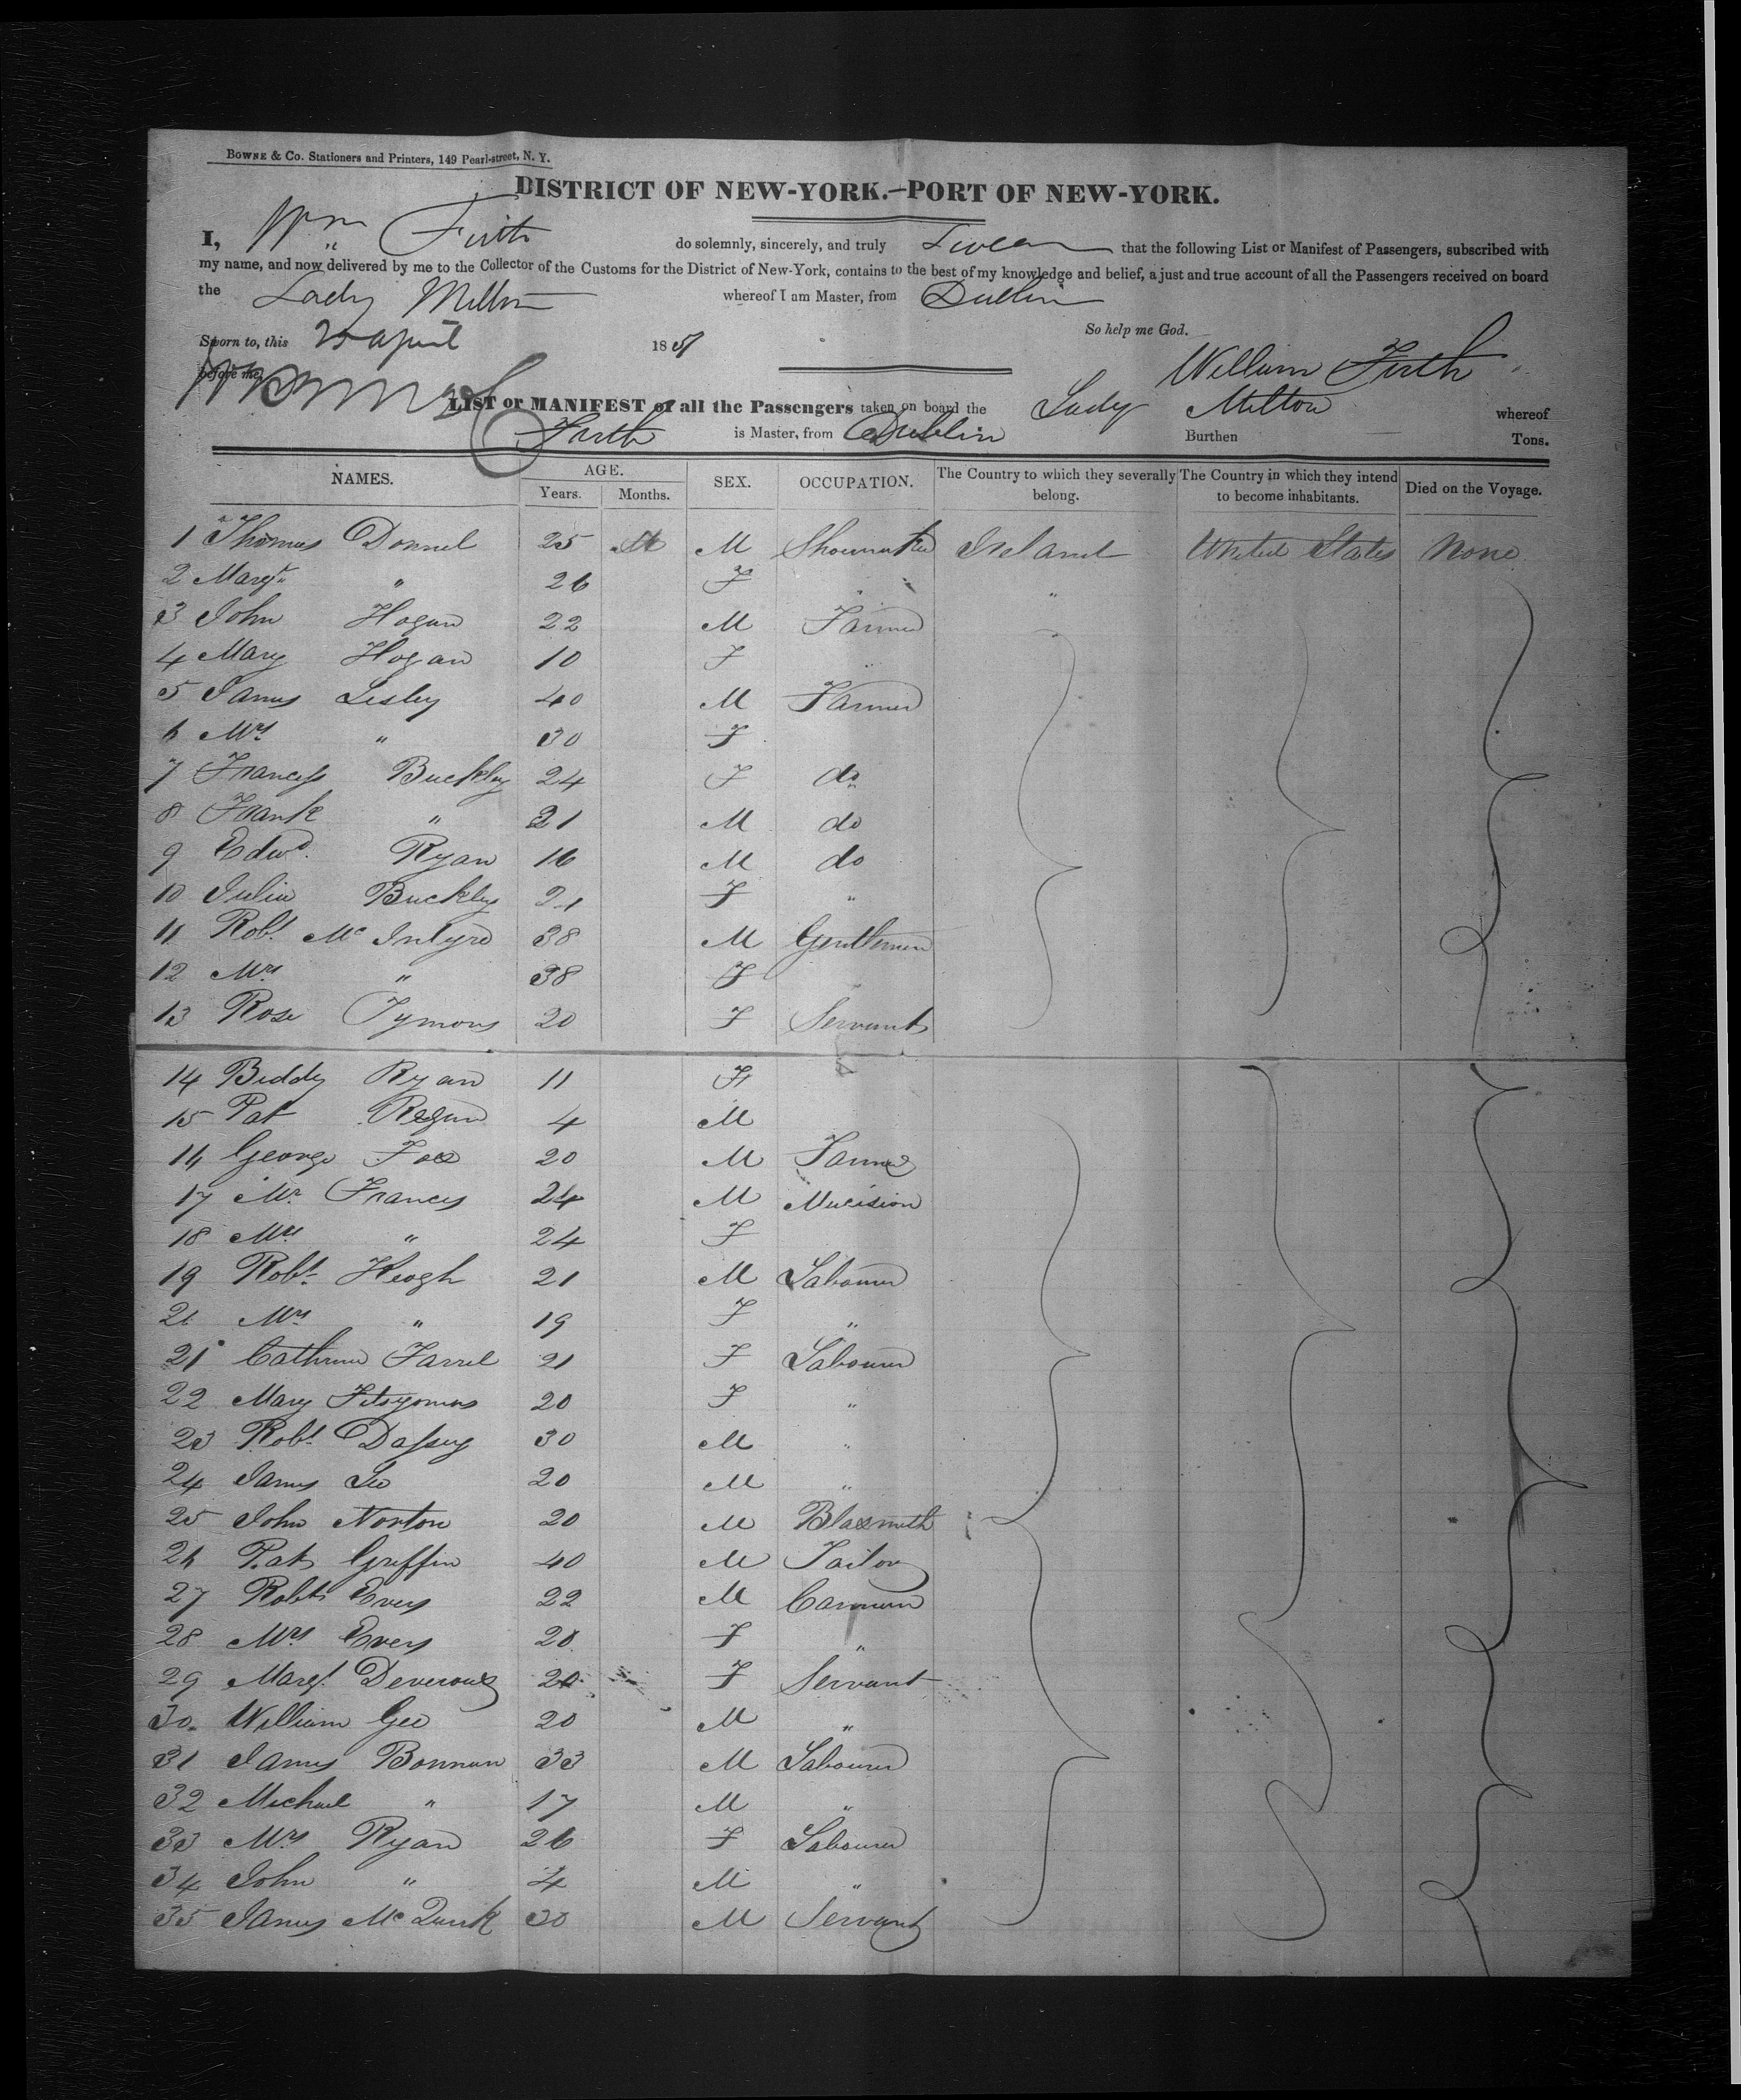 BOWNE & Co. Stationers and Printers, 149 Pearl-street, N. Y.
DISTRICT OF NEW-YORK.—PORT OF NEW-YORK.
I, Wm Firth do solemnly, sincerely, and truly Swear that the following List or Manifest of Passengers, subscribed with
my name, and now delivered by me to the Collector of the Customs for the District of New-York, contains to the best of my knowledge and belief, a just and true account of all the Passengers received on board
the Lady Milton whereof I am Master, from Dublin
So help me God.
Sworn to, this 25 april 1851
before me, William Firth
LIST or MANIFEST of all the Passengers taken on board the Lady Milton whereof
Firth is Master, from Dublin Burthen Tons.
NAMES. AGE. Years. Months. SEX. OCCUPATION. The Country to which they severally belong. The Country in which they intend to become inhabitants. Died on the Voyage.
1 Thomas Donnel 25 M M Shoemaker Ireland United States None
2 Margt " 26 F " "
3 John Hogan 22 M Farmer
4 Mary Hogan 10 F "
5 James Lesley 40 M Farmer
6 Mrs " 30 F
7 Francess Buckley 24 F do
8 Frank " 21 M do
9 Edwd. Ryan 16 M do
10 Julia Buckley 21 F "
11 Robt. Mc Intyre 38 M Gentleman
12 Mrs " 38 F
13 Rose Tymons 20 F Servant
14 Biddy Ryan 11 F
15 Pat Regan 4 M
16 George Fox 20 M Farmer
17 Mr Francis 24 M Mucision
18 Mrs " 24 F
19 Robt Keogh 21 M Labourer
Mrs " 19 F "
21 Cathrine Farrel 21 F Labourer
22 Mary Fitsgomns 20 F "
23 Robt Dassey 30 M "
24 James Lee 20 M "
25 John Norton 20 M Blaxmith
26 Pat Griffin 40 M Tailor
27 Robt Evers 22 M Carman
28 Mrs Evers 20 F "
29 Margt. Deveroux 20 F Servant
30 William Gee 20 M "
31 James Bonnan 33 M Labourer
32 Michael " 17 M "
33 Mrs Ryan 26 F Labourer
34 John " 4 M "
35 James Mc Quirk 30 M Servant